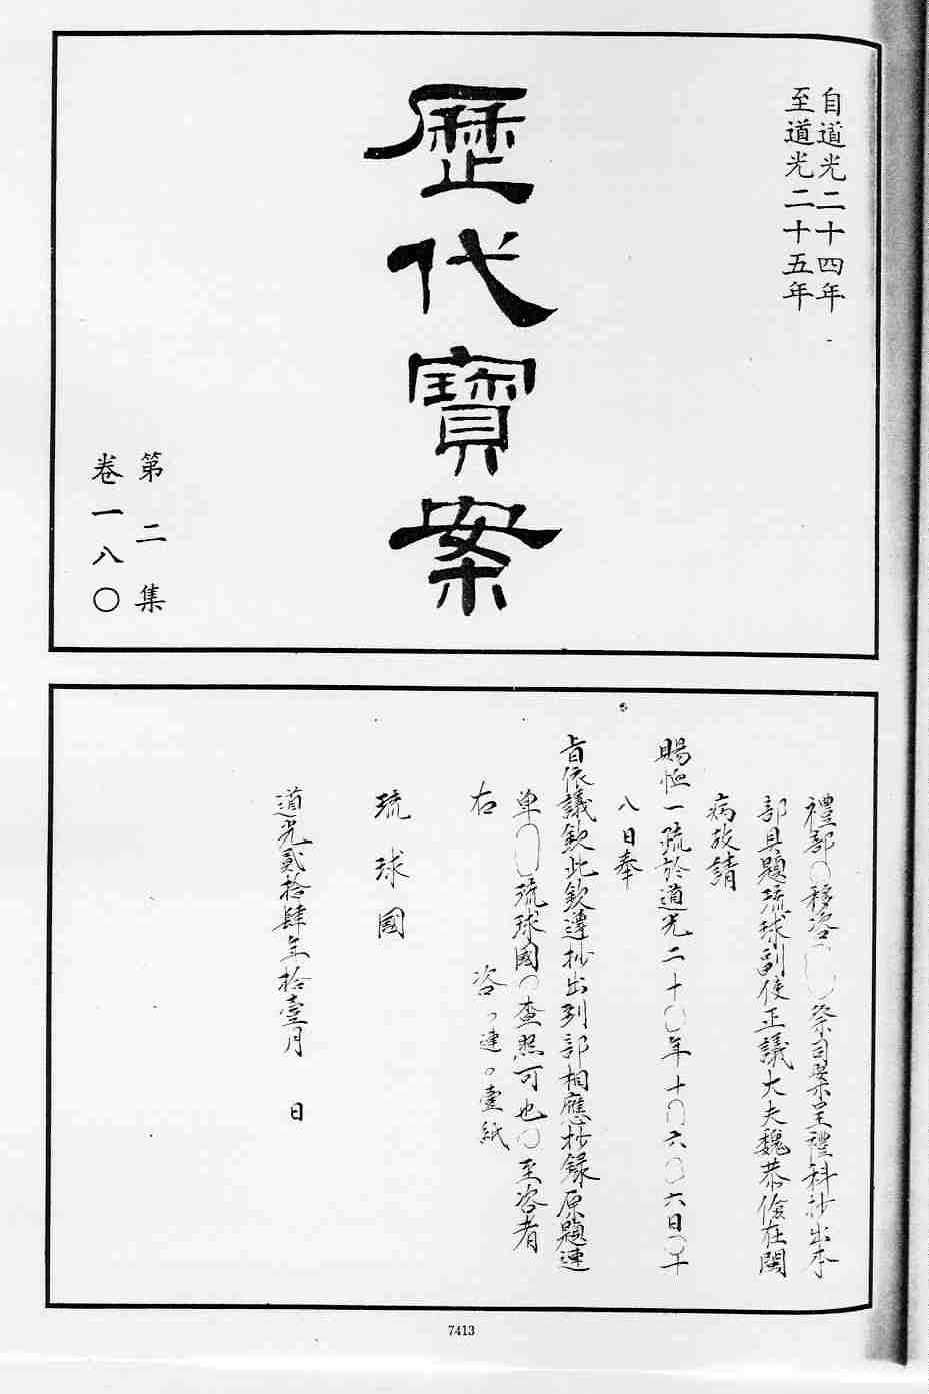 自道光二十四年
至道光二十五年
歷代寶案
第二集
卷一八〇
禮部〇移咨〇〇祭司案呈禮科抄出本
部具題琉球副使正議大夫魏恭儉在閩
病故請
賜恤一疏於道光二十〇年十〇六〇六日〇年
八日奉
旨依議欽此欽遵抄出到部相應抄錄原題連
單〇〇琉球國〇查照可也〇至咨者
右
咨、連。壹紙
琉球國
道光貳拾肆年拾壹月 日
7413